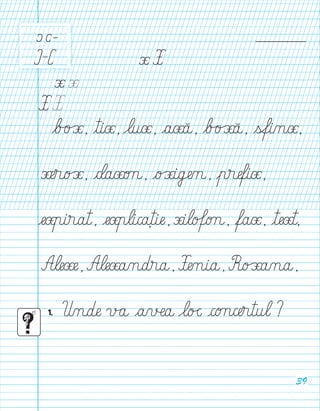 ɔc-
Ɔ-C x X
x x
X X
box, tix, lux, axă, boxă, sfinx,
xerox, claxon, oxigen, prefix,
expirat, explicație, xilofon, fax, text,
Alexe, Alexandra, Xenia, Roxana,
1. Unde va avea loc concertul?
39